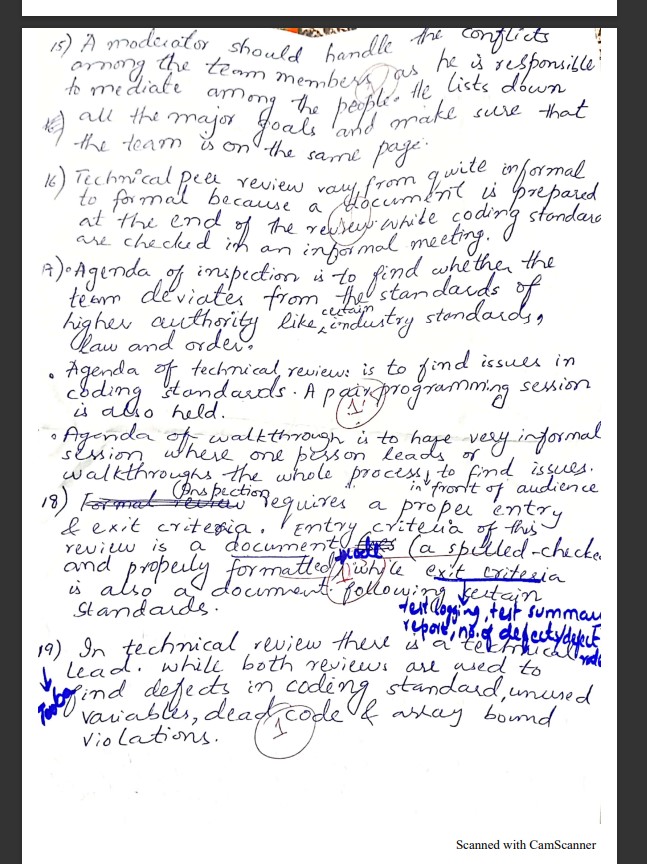 15) A moderator should handle the conflicts
among the team members, as he is responsible
to mediate among the people. He lists down
all the major goals and make sure that
the team is on the same page.
16) Technical peer review vary from quite informal
to formal because a document is prepared
at the end of the review while coding standard
are checked in an informal meeting.
17) • Agenda of inspection is to find whether the
team deviates from the standards of
higher authority like certain industry standards,
law and order.
• Agenda of technical review: is to find issues in
coding standards. A pair programming session
is also held.
1
• Agenda of walkthrough is to have very informal
session where one person leads or
walkthroughs the whole process, to find issues.
in front of audience
18) Formal review (Inspection) requires a proper entry
& exit criteria. Entry criteria of this
review is a document (a spelled-checke
and properly formatted) while exit criteria
1
is also a document following certain
standards.
test logging, test summary
report, no. of defects/defect
19) In technical review there is a technical
lead. while both reviews are used to
find defects in coding standard, unused
variables, dead code & array bound
violations.
1
Scanned with CamScanner